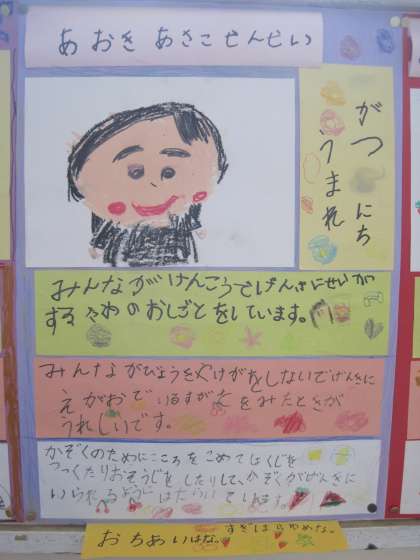 あおき あさこ せんせい
がつ にち
うまれ
みんながけんこうでげんきにせいかつ
するためのおしごとをしています。
みんながびょうきやけがをしないでげんきに
えがおでいるすがたをみたときが
うれしいです。
かぞくのためにこころをこめてしょくじを
つくったりおそうじをしたりして、かぞくがげんきに
いられるようにはたらいています。
おちあいはな。
すぎはらゆめな。